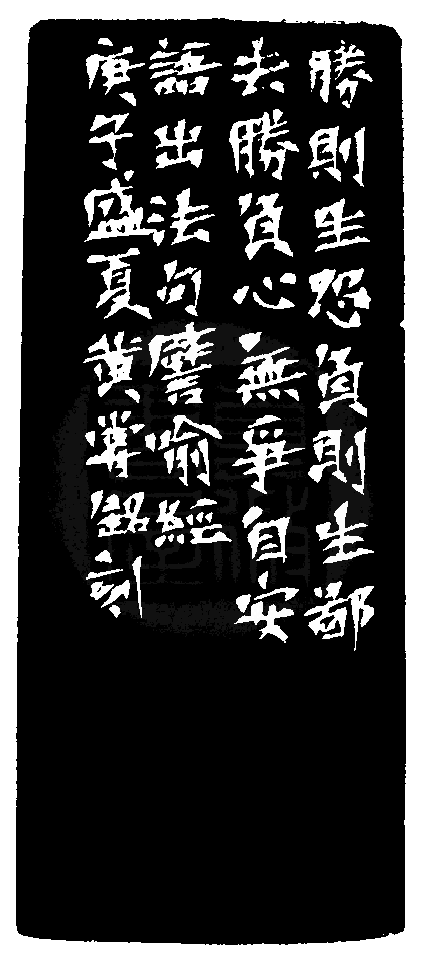 勝則生怨負則生鄙
去勝負心無爭自安
語出法句譬喻經
庚子盛夏黄尊銘刻